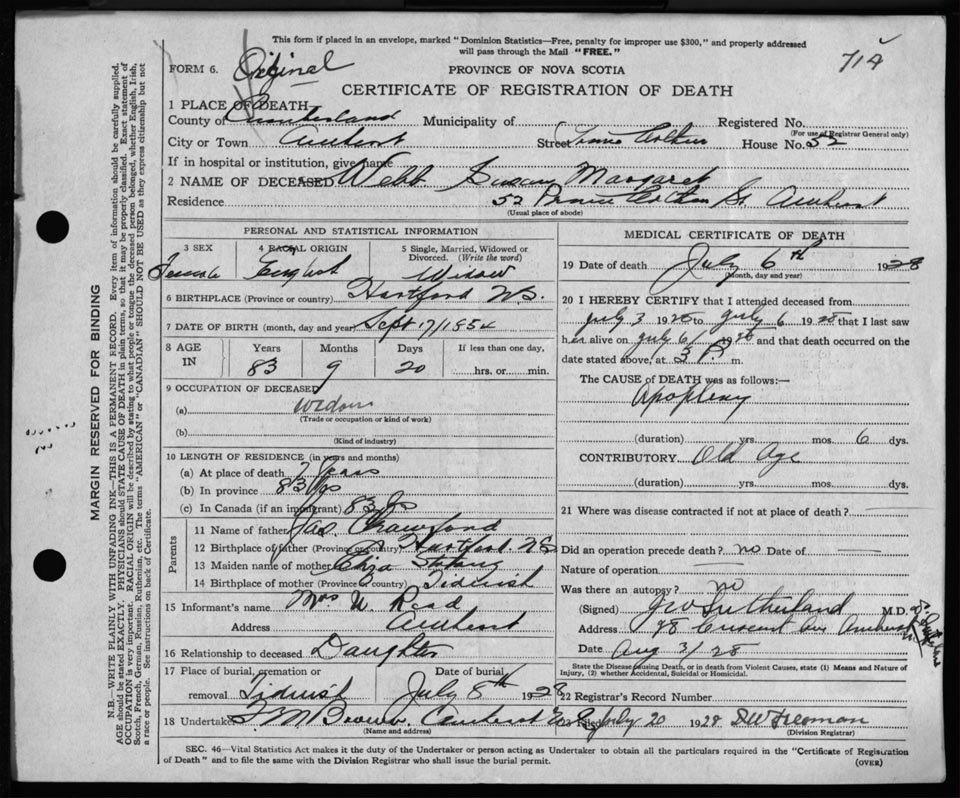 This form if placed in an envelope, marked "Dominion Statistics—Free, penalty for improper use $300," and properly addressed
will pass through the Mail "FREE."
714
FORM 6. Original PROVINCE OF NOVA SCOTIA
CERTIFICATE OF REGISTRATION OF DEATH
1 PLACE OF DEATH
County of Cumberland Municipality of Registered No.
(For use of Registrar General only)
City or Town Amherst Street Prince Arthur House No. 52
If in hospital or institution, give name
2 NAME OF DECEASED Webb Susan Margaret
Residence 52 Prince Arthur St. Amherst
(Usual place of abode)
PERSONAL AND STATISTICAL INFORMATION
3 SEX 4 RACIAL ORIGIN 5 Single, Married, Widowed or
Divorced. (Write the word)
Female English Widow
6 BIRTHPLACE (Province or country) Hartford N.S.
7 DATE OF BIRTH (month, day and year) Sept 17/1854
8 AGE IN Years Months Days If less than one day,
83 9 20 hrs. or min.
9 OCCUPATION OF DECEASED
(a) Widow
(Trade or occupation or kind of work)
(b)
(Kind of industry)
10 LENGTH OF RESIDENCE (in years and months)
(a) At place of death 7 Years
(b) In province 83 Yrs
(c) In Canada (if an immigrant) 83 Yrs
Parents
11 Name of father Jas. Crawford
12 Birthplace of father (Province or country) Hartford. NS
13 Maiden name of mother Eliza
14 Birthplace of mother (Province or country) Tidnish
15 Informant's name Mrs W. Read
Address Amherst
16 Relationship to deceased Daughter
17 Place of burial, cremation or Date of burial
removal Tidnish July 8th 1928
18 Undertaker F M Brown. Amherst
(Name and address)
MEDICAL CERTIFICATE OF DEATH
19 Date of death July 6th 1928
(Month, day and year)
20 I HEREBY CERTIFY that I attended deceased from
July 3 1928 to July 6 1928 that I last saw
her alive on July 6/ 1928 and that death occurred on the
date stated above, at 3 P. m.
The CAUSE of DEATH was as follows:—
Apoplexy
(duration) yrs. mos. 6 dys.
CONTRIBUTORY Old Age
(duration) yrs. mos. dys.
21 Where was disease contracted if not at place of death?
Did an operation precede death? no Date of
Nature of operation
Was there an autopsy? no
(Signed) J W Sutherland M.D.
Address 78 Crescent Ave Amherst
Date Aug 3/28
State the Disease Causing Death, or in death from Violent Causes, state (1) Means and Nature of
Injury, (2) whether Accidental, Suicidal or Homicidal.
22 Registrar's Record Number
23 Filed July 20 1928
(Division Registrar)
SEC. 46—Vital Statistics Act makes it the duty of the Undertaker or person acting as Undertaker to obtain all the particulars required in the "Certificate of Registration
of Death" and to file the same with the Division Registrar who shall issue the burial permit. (OVER)
MARGIN RESERVED FOR BINDING
N.B.—WRITE PLAINLY WITH UNFADING INK—THIS IS A PERMANENT RECORD. Every item of information should be carefully supplied.
AGE should be stated EXACTLY. PHYSICIANS should STATE CAUSE OF DEATH in plain terms, so that it may be properly classified. Exact statement of
OCCUPATION is very important. RACIAL ORIGIN will be described by stating to what people or tongue the deceased person belonged, whether English, Irish,
Scotch, French, German, Russian, Ruthenian, etc. The terms "AMERICAN" or "CANADIAN" SHOULD NOT BE USED as they express citizenship but not
a race or people. See instructions on back of Certificate.